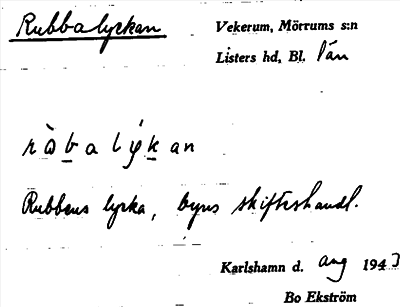 Rubbalyckan
Vekerum, Mörrums s:n
Listers hd, Bl. län
Rubbens lycka, byns skifteshandl.
Karlshamn d. aug 1943
Bo Ekström